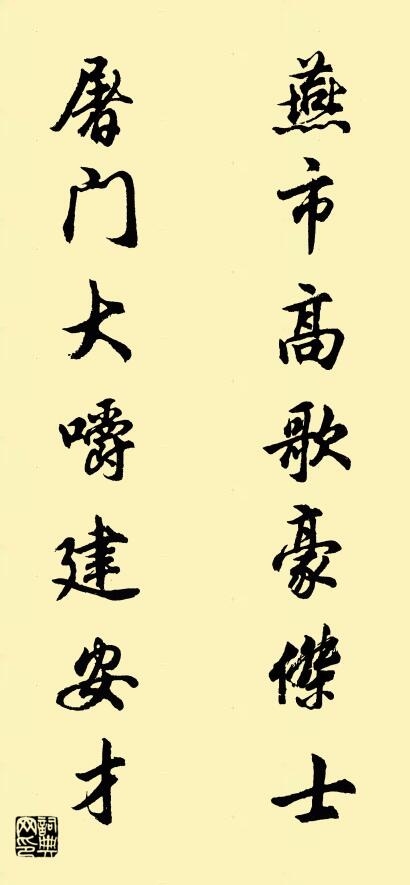 燕市高歌豪傑士
屠门大嚼建安才
詞典网印